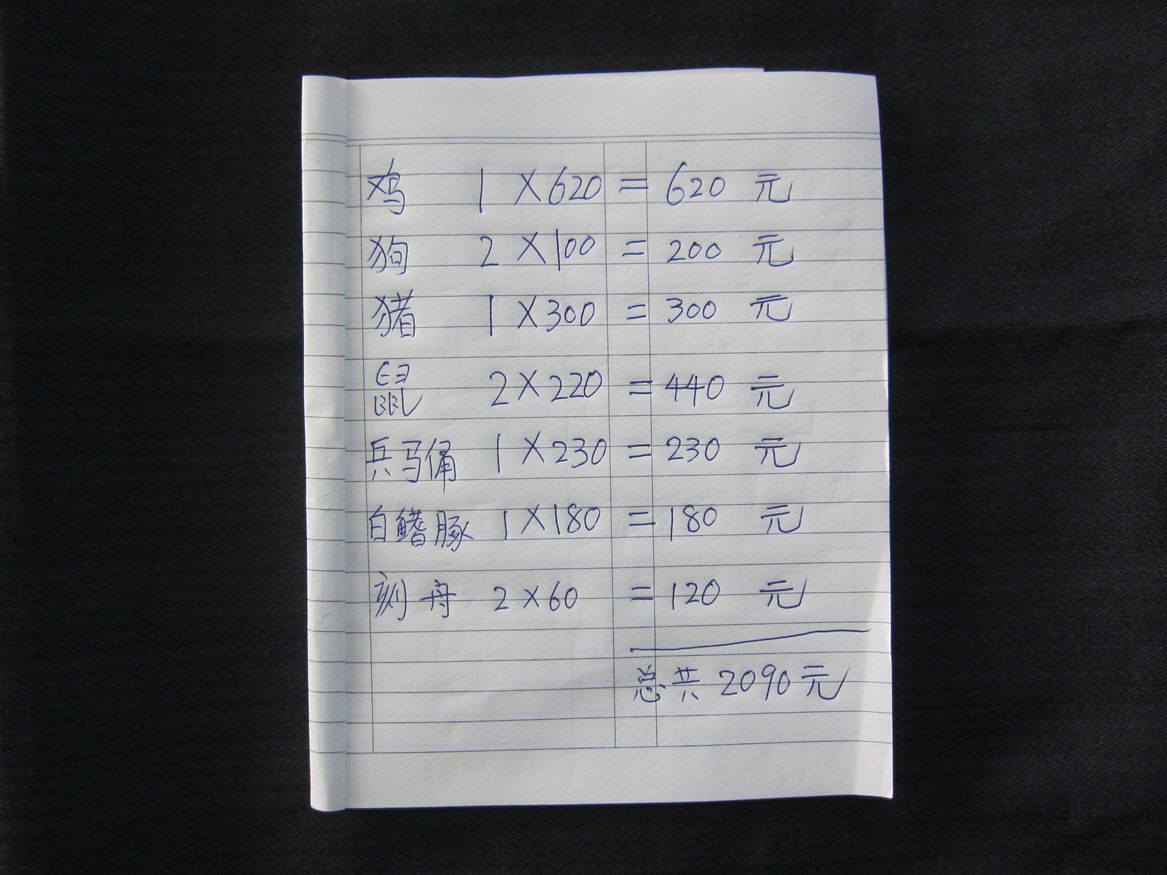 鸡 1 ×620 = 620 元
狗 2 ×100 = 200 元
猪 1 ×300 = 300 元
鼠 2×220 = 440 元
兵马俑 1 ×230 = 230 元
白鳍豚 1 ×180 = 180 元
刻舟 2×60 = 120 元
总共 2090元